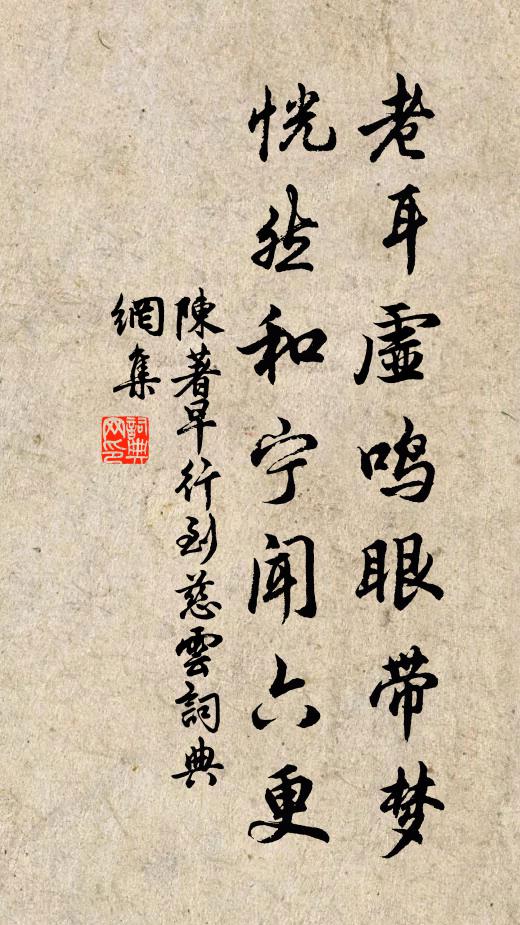 老耳虚鸣眼带梦
恍然和宁闻六更
陳著早行到慈雲詞典
網集
詞典
网印